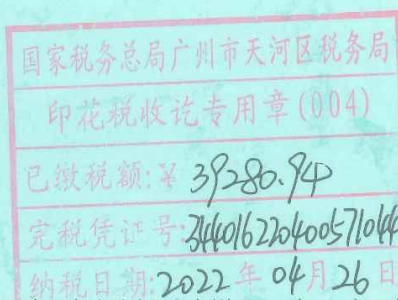 国家税务总局广州市天河区税务局
印花税收讫专用章(004)
已缴税额:¥ 39280.94
完税凭证号:344016220400571044
纳税日期:2022年04月26日